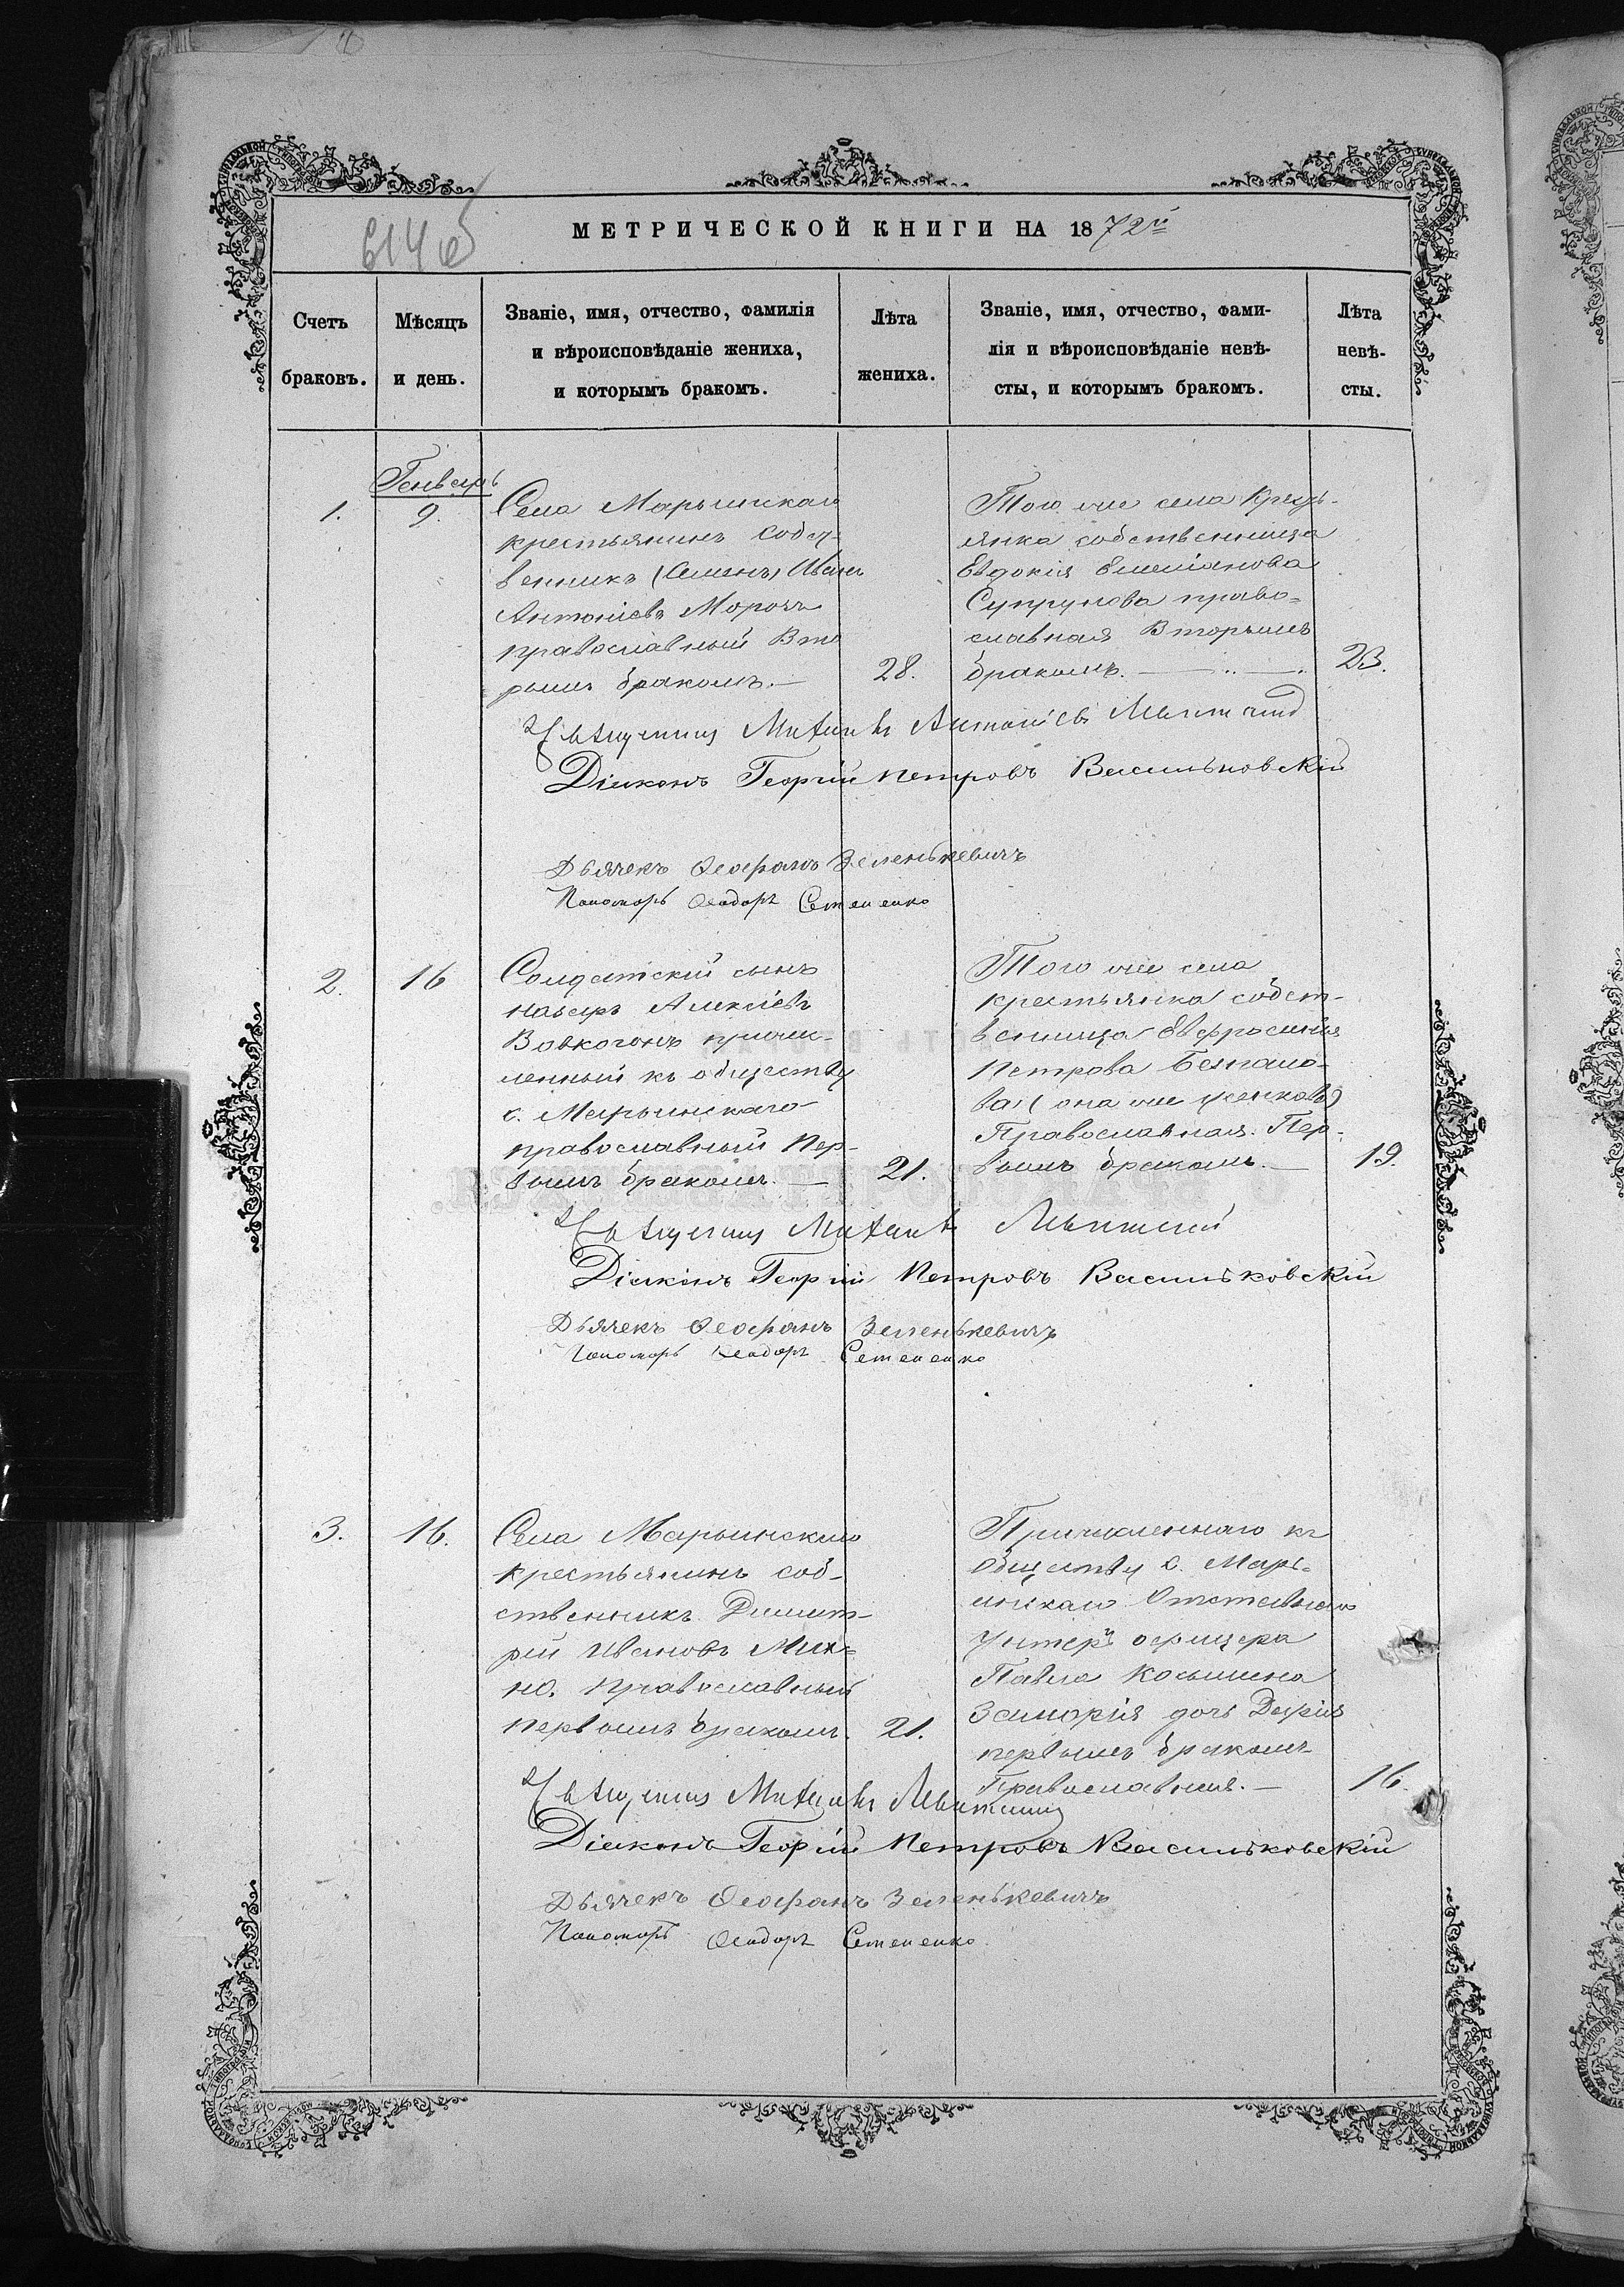 614об
МЕТРИЧЕСКОЙ КНИГИ НА 1872й
Счетъ браковъ.
Мѣсяцъ и день.
Званіе, имя, отчество, фамилія
и вѣроисповѣданіе жениха,
и которымъ бракомъ.
Лѣта
жениха.
Званіе, имя, отчество, фами-
лія и вѣроисповѣданіе невѣ-
сты, и которымъ бракомъ.
Лѣта
невѣ-
сты.
Генварь
1.
9.
Села Марьинскаго
крестьянинъ собст-
венникъ (Семенъ) Иванъ
Антоніевъ Морозъ
православный Вто
рымъ бракомъ.—
28.
Того же села Кресть-
янка собственница
Евдокія Емеліанова
Супрунова право-
славная Вторымъ
бракомъ.
23.
Священникъ Михаилъ Антоніевъ
Діаконъ Георгій Петровъ Васильковскій
Дьячекъ Ѳеофанъ Зеленькевичъ
Пономарь Ѳеодоръ Семененко
2.
16
Солдатскій сынъ
Назаръ Алексіевъ
Вовкогонъ причис-
ленный къ обществу
с. Марьинскаго
православный Пер-
вымъ бракомъ.—
21.
Того же села
крестьянка собст-
венница Евфросинія
Петрова Безпало-
ва (она же Усенкова)
Православная. Пер-
вымъ бракомъ.—
19.
Священникъ Михаилъ
Діаконъ Георгій Петровъ Васильковскій
Дьячекъ Ѳеофанъ Зеленькевичъ
Пономарь Ѳеодоръ Семененко
3.
16.
Села Марьинскаго
крестьянинъ соб-
ственникъ Димит-
рій Ивановъ Мих-
но. Православный
первымъ бракомъ.
21.
Причисленнаго къ
Обществу с. Марь-
инскаго Отставнаго
Унтеръ офицера
Павла Косьмина
дочь Дарія
первымъ бракомъ
Православная.—
16.
Священникъ Михаилъ
Діаконъ Георгій Петровъ Васильковскій
Дьячекъ Ѳеофанъ Зеленькевичъ
Пономарь Ѳеодоръ Семененко